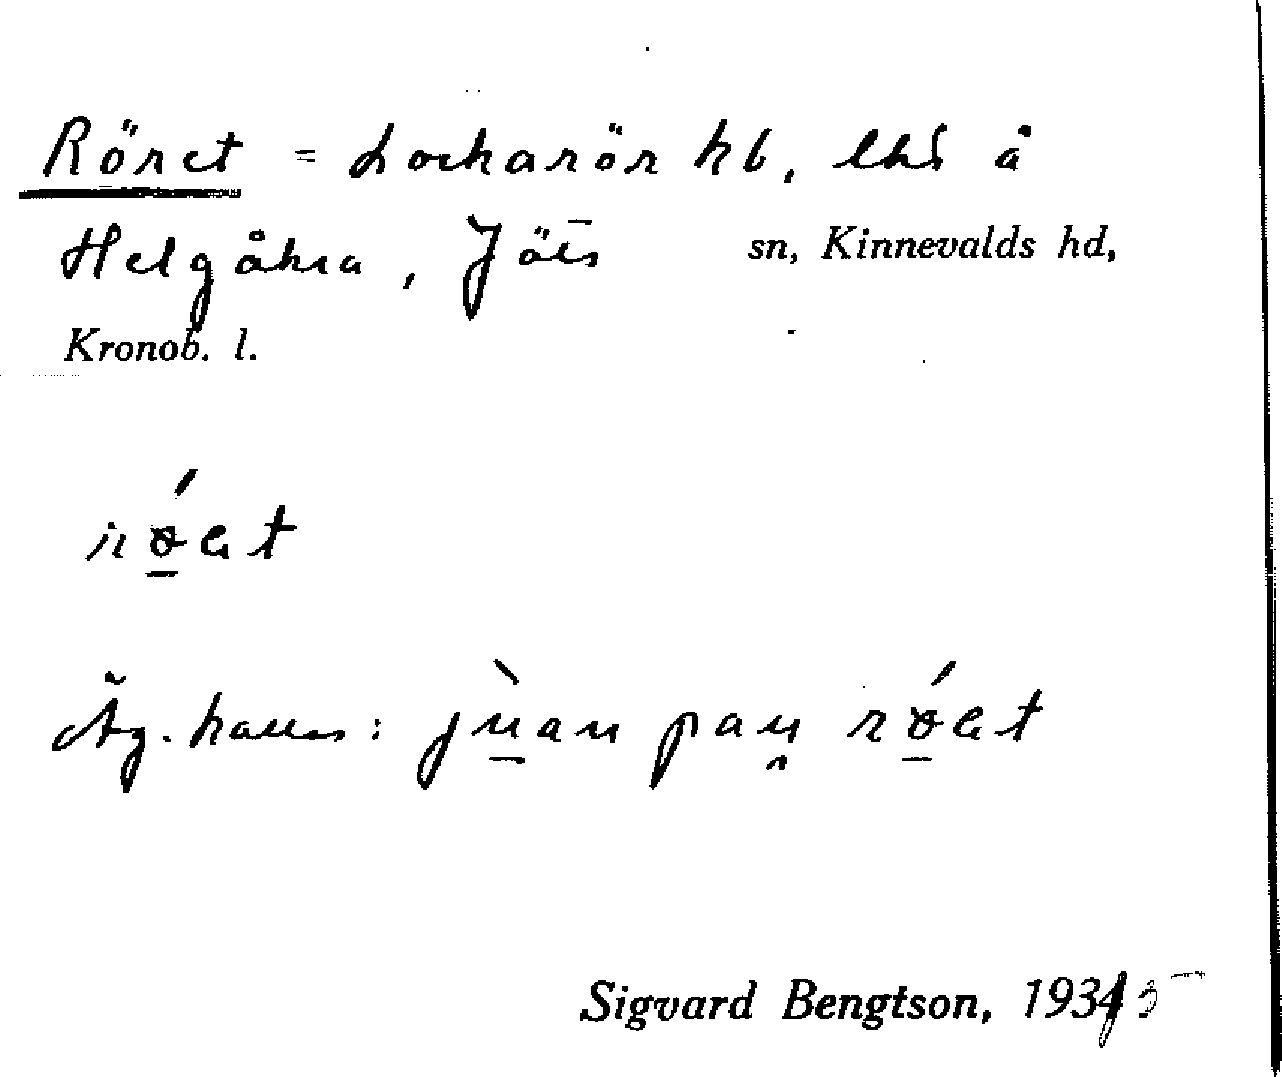 Röret = Lockarör hb, lht å
Helgåkra, Jäts sn, Kinnevalds hd,
Kronob. l.
röet
Äg. kallas: juan pan röet
Sigvard Bengtson, 1935